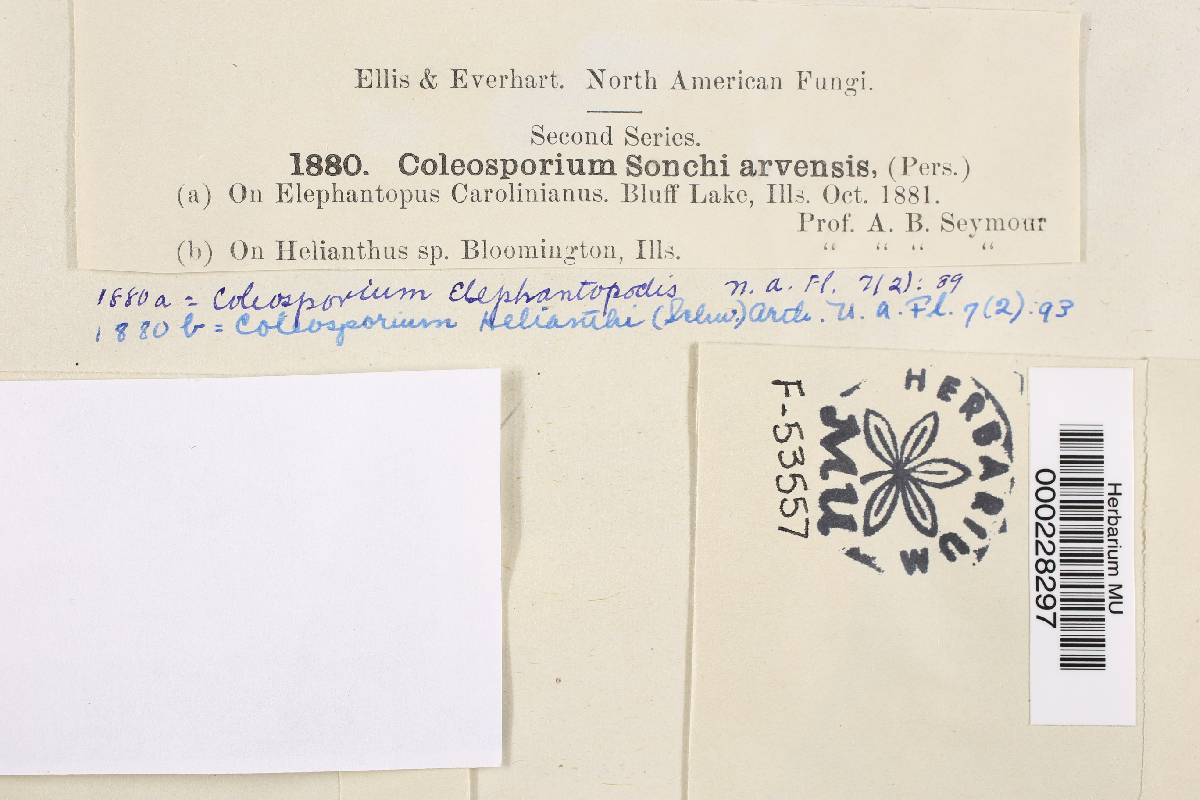 Ellis & Everhart. North American Fungi.
Second Series.
1880. Coleosporium Sonchi arvensis, (Pers.)
(a) On Elephantopus Carolinianus. Bluff Lake, Ills. Oct. 1881.
Prof. A. B. Seymour
(b) On Helianthus sp. Bloomington, Ills. " " " "
1880a = Coleosporium Elephantopodis N. A. Fl. 7(2): 89
1880 b = Coleosporium Helianthi (Schw.) Arth. N. A. Fl. 7(2): 93
F-53557
HERBARIUM
MU
Herbarium MU
000228297